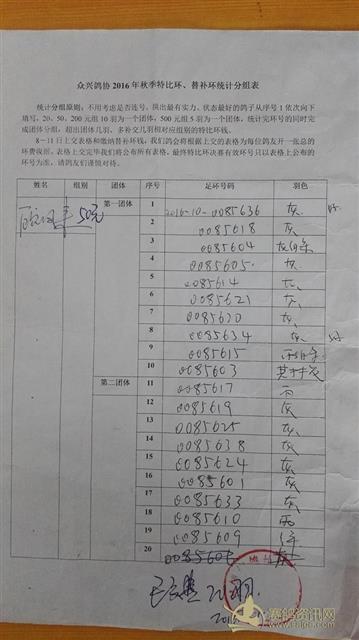 众兴鸽协 2016 年秋季特比环、替补环统计分组表
统计分组原则：不用考虑是否连号，供出最有实力、状态最好的鸽子从序号 1 依次向下
填写，20、50、200 元组 10 羽为一个团体，500 元组 5 羽为一个团体，统计完环号的同时完
成团体分组，超出团体几羽、多补交几羽相对应组别的特比环钱。
8－11 日上交表格和缴纳替补环钱，我们鸽会将根据上交的表格为每位鸽友开一张总的
环费收据。表格上交完毕我们将公布所有表格。最终特比环决赛有效环号只以表格上公布的
环号为准，请鸽友们谨慎对待。
姓名 组别 团体 序号 足环号码 羽色
50元 第一团体 1 2016-10-0085636 灰
2 0085618 灰
3 0085604
4 0085605 灰
5 0085614 灰
6 0085621 灰
7 0085620 灰
8 0085634 灰
9 0085615
10 0085603
第二团体 11 0085617
12 0085619 灰
13 0085625 灰
14 0085638 灰
15 0085624 灰
16 0085601 灰
17 0085633 灰
18 0085610 雨
19 0085609
20
赛鸽资讯网